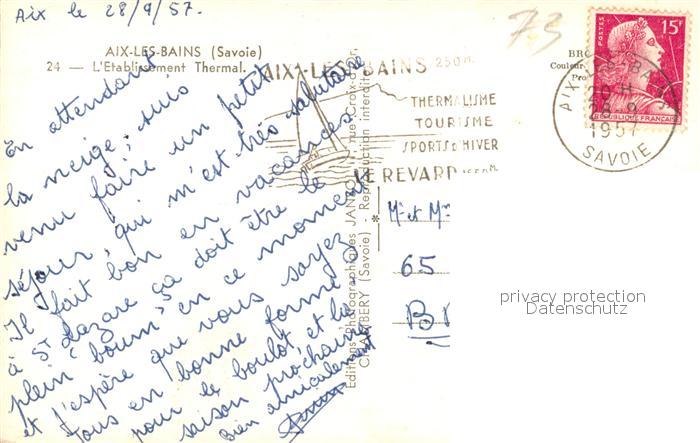 Aix le 28/9/57.
73
AIX-LES-BAINS (Savoie)
24 — L'Etablissement Thermal.
En attendant
la neige, suis
venu faire un petit
séjour, qui m'est très salutaire
Il fait bon en vacances
à St Lazare ça doit être le
plein "boum" en ce moment
et j'espère que vous soyez
tous en bonne forme
pour le boulot, et la
saison prochaine
Bien amicalement
AIX-LES-BAINS 250 m.
THERMALISME
TOURISME
SPORTS D'HIVER
LE REVARD
Editions Photographiques JANSOL, rue Croix-d'
CHAMBERY (Savoie) - Reproduction interdite
BRO
Couleur
Pro
15F
POSTES
REPUBLIQUE FRANÇAISE
AIX-LES-BAINS
20 H
28-9
1957
SAVOIE
Mr et Mm
65
B
privacy protection
Datenschutz